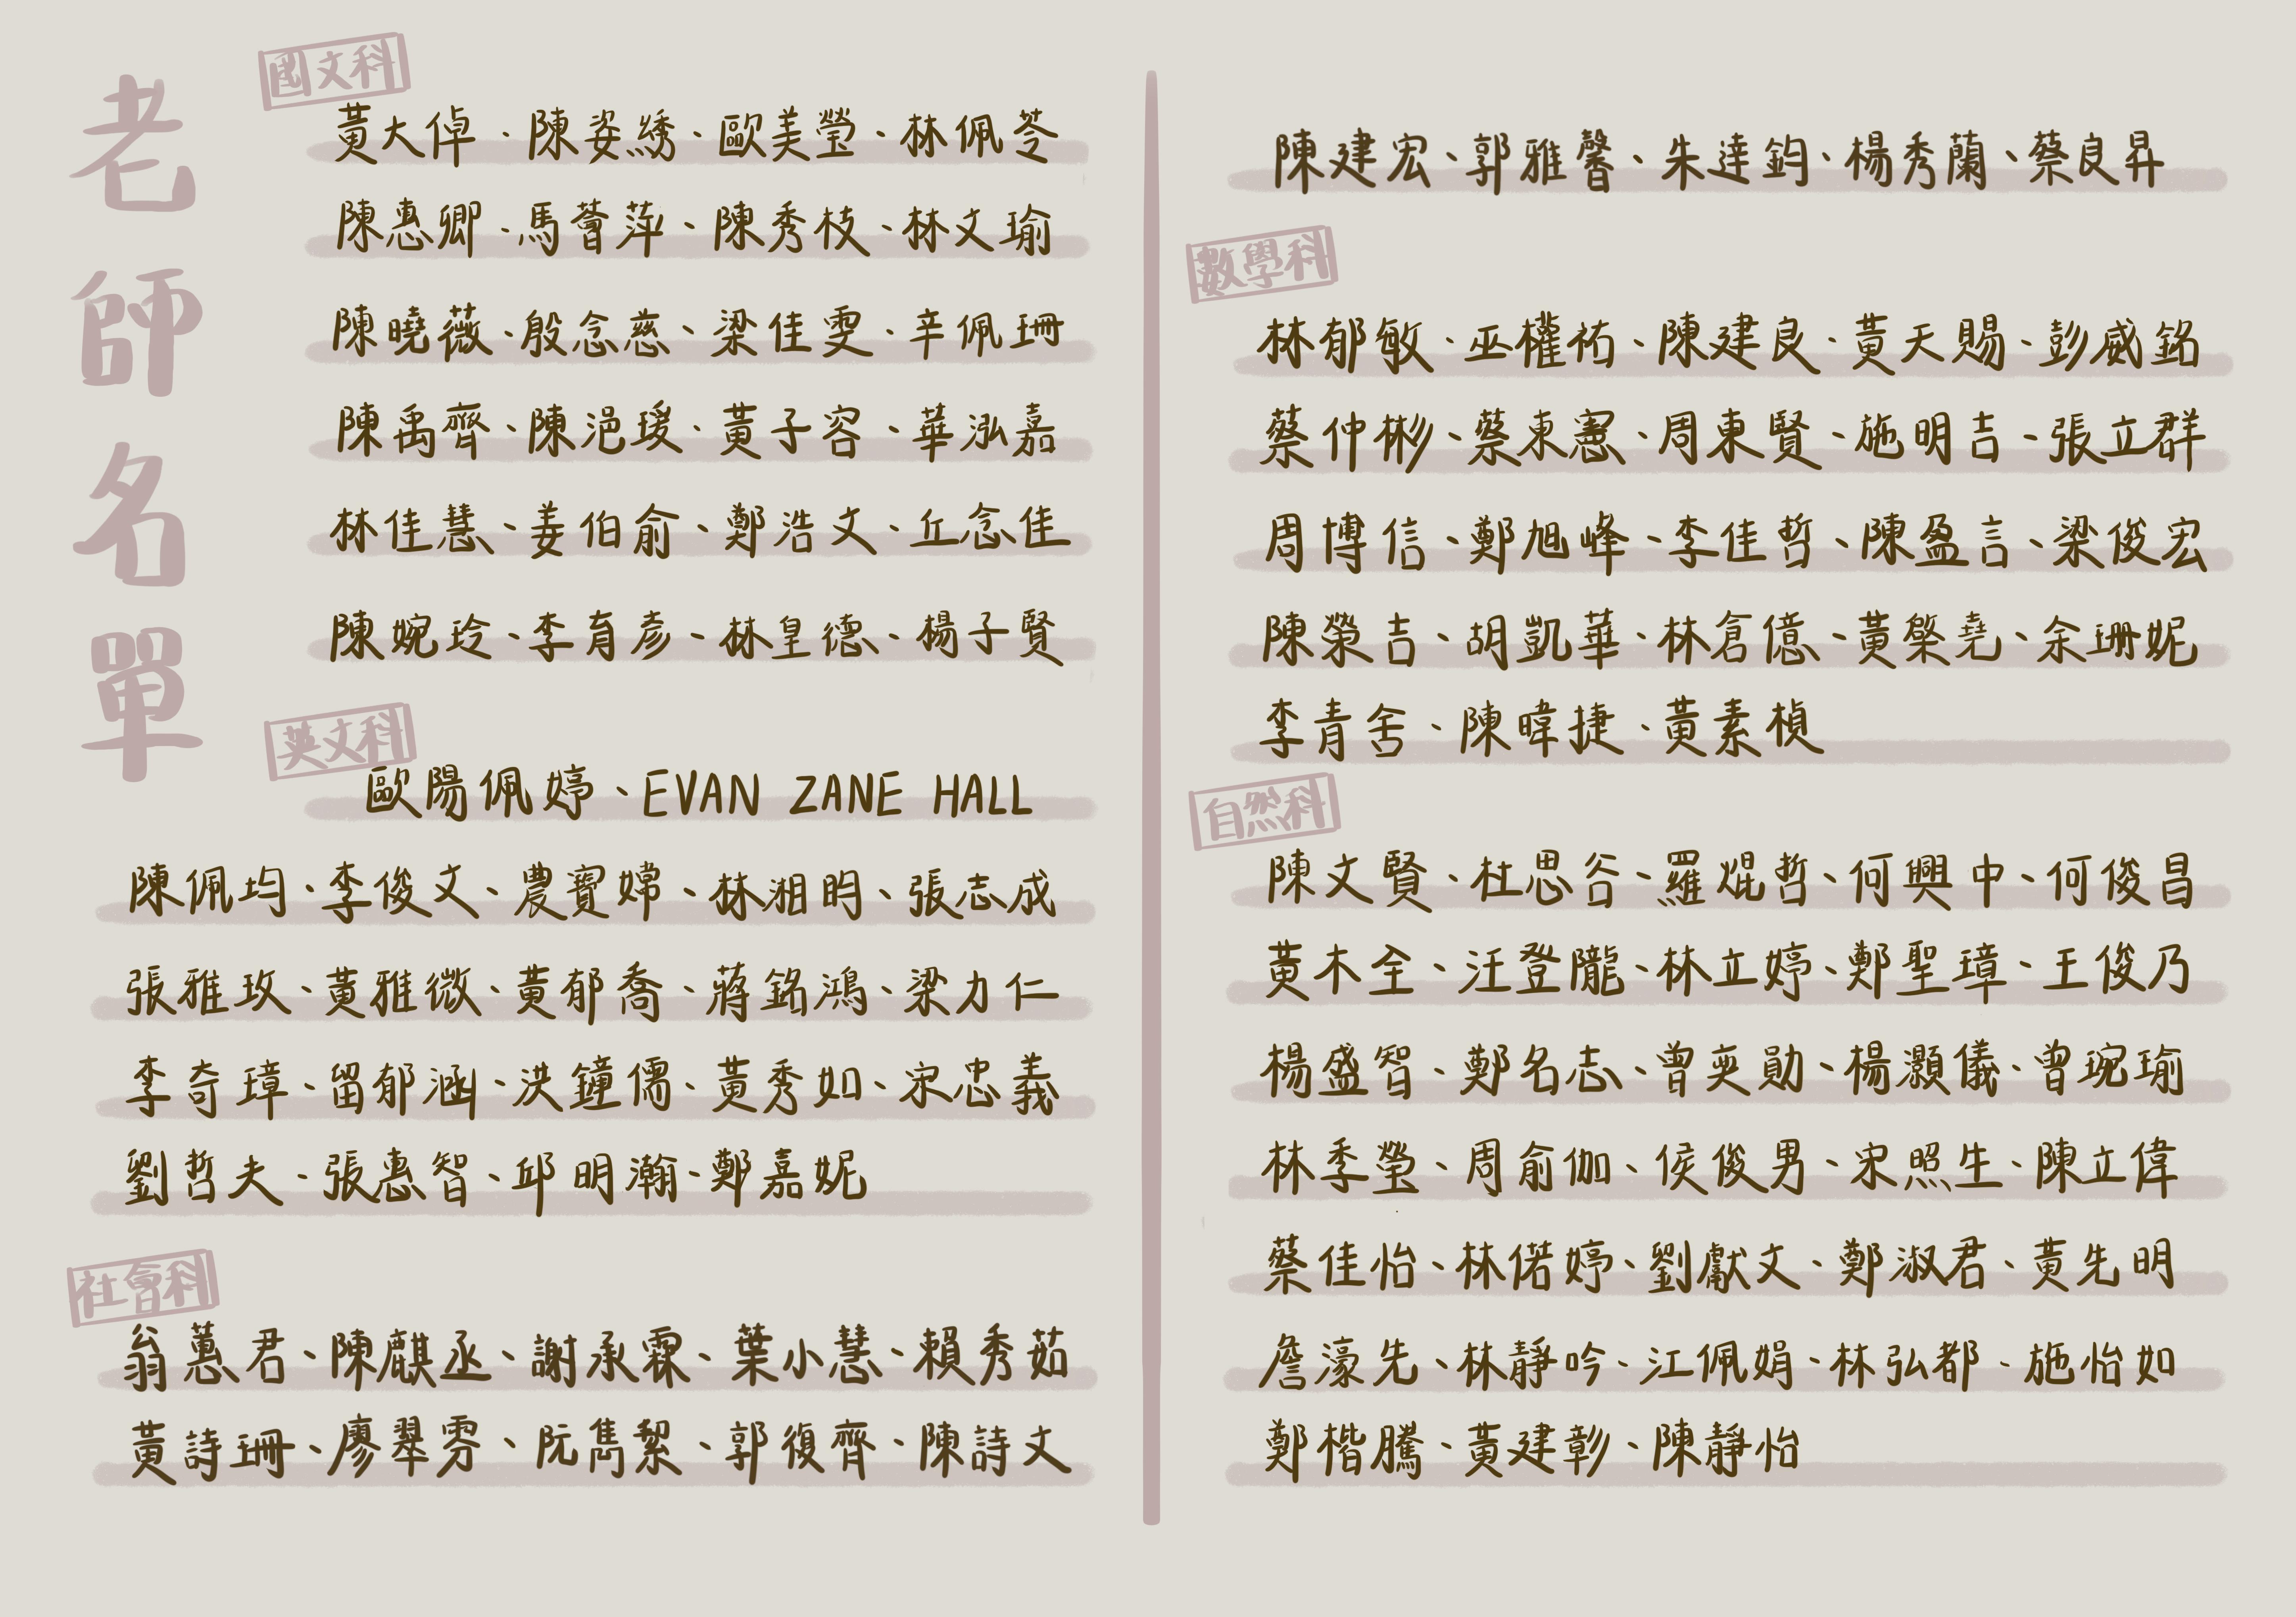 老師名單
國文科
黃大倬、陳姿綉、歐美瑩、林佩苓
陳惠卿、馬薈萍、陳秀枝、林文瑜
陳曉薇、殷念慈、梁佳雯、辛佩珊
陳禹齊、陳浥瑗、黃子容、華泓嘉
林佳慧、姜伯俞、鄭浩文、丘念佳
陳婉玲、李育彥、林皇德、楊子賢
英文科
歐陽佩婷、EVAN ZANE HALL
陳佩均、李俊文、農寶嫦、林湘昀、張志成
張雅玫、黃雅微、黃郁喬、蔣銘鴻、梁力仁
李奇璋、留郁涵、洪鐘儒、黃秀如、宋忠義
劉哲夫、張惠智、邱明瀚、鄭嘉妮
社會科
翁蕙君、陳麒丞、謝承霖、葉小慧、賴秀茹
黃詩珊、廖翠雰、阮雋絜、郭復齊、陳詩文
陳建宏、郭雅馨、朱達鈞、楊秀蘭、蔡良昇
數學科
林郁敏、巫權祐、陳建良、黃天賜、彭威銘
蔡仲彬、蔡東憲、周東賢、施明吉、張立群
周博信、鄭旭峰、李佳哲、陳盈言、梁俊宏
陳榮吉、胡凱華、林倉億、黃棨堯、余珊妮
李青舍、陳暐捷、黃素楨
自然科
陳文賢、杜思谷、羅焜哲、何興中、何俊昌
黃木全、汪登隴、林立婷、鄭聖璋、王俊乃
楊盛智、鄭名志、曾奕勛、楊灝儀、曾琬瑜
林季瑩、周俞伽、侯俊男、宋照生、陳立偉
蔡佳怡、林偌婷、劉獻文、鄭淑君、黃先明
詹濠先、林靜吟、江佩娟、林弘都、施怡如
鄭楷騰、黃建彰、陳靜怡